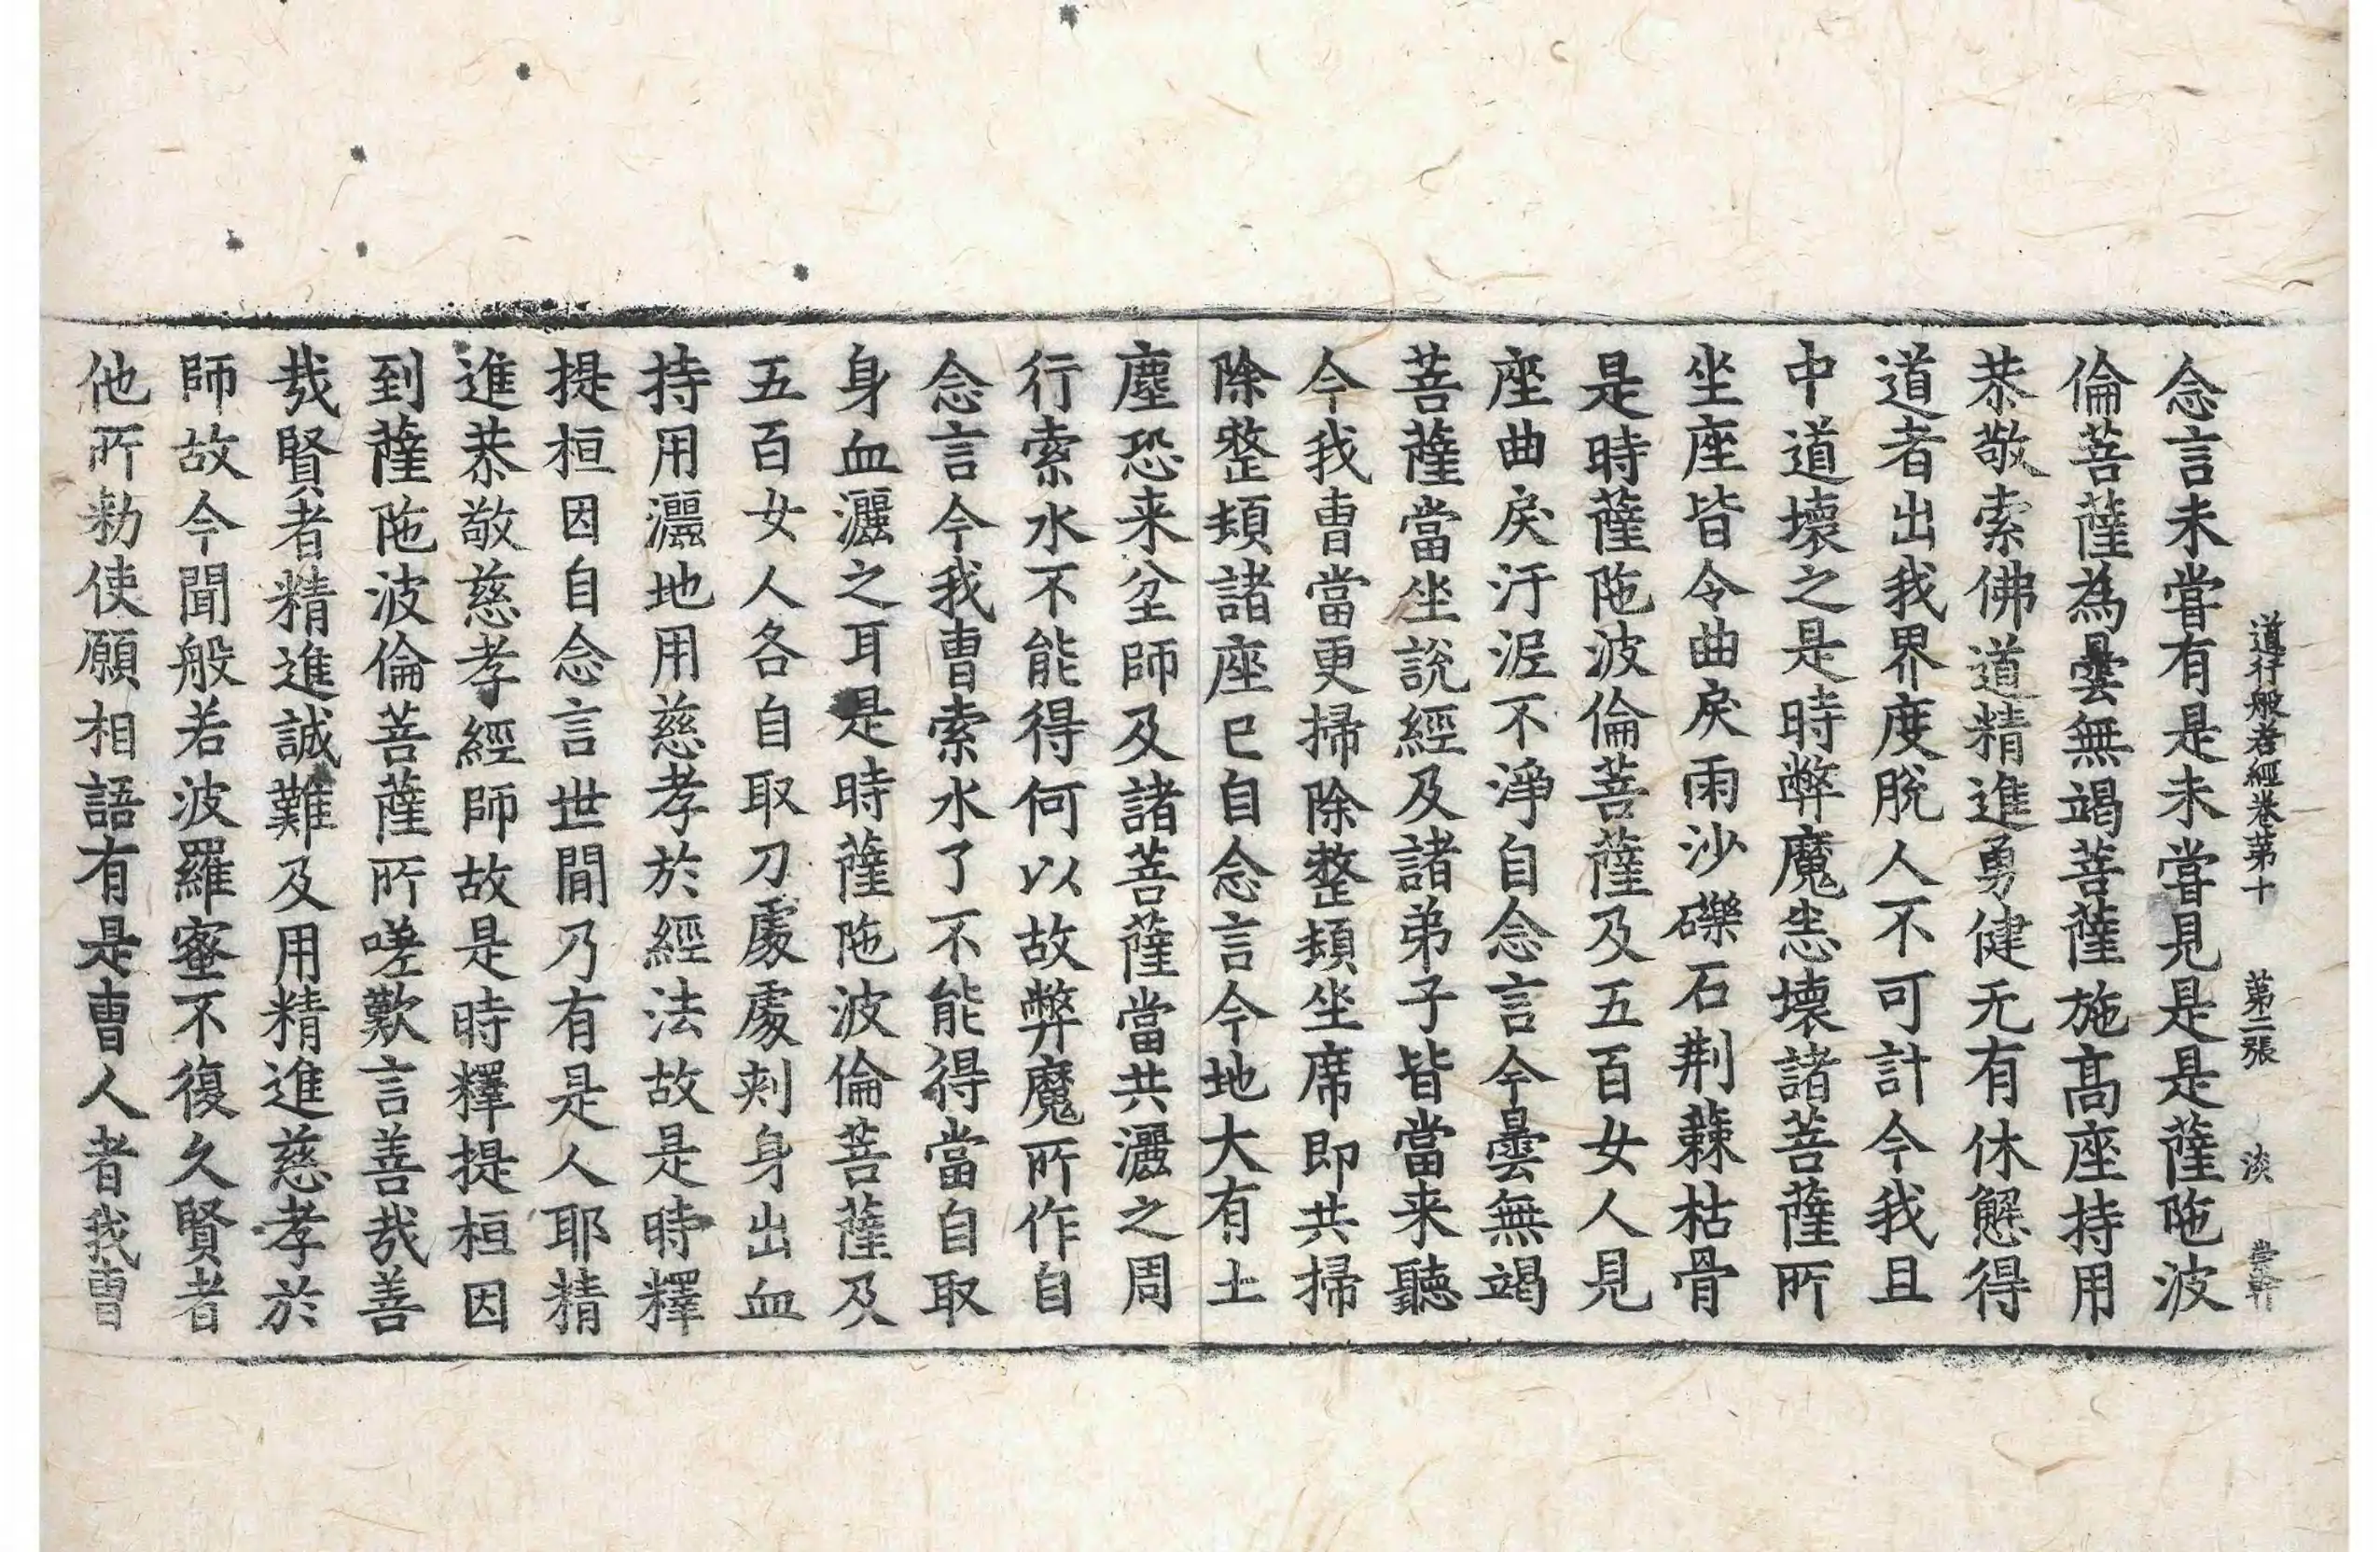 道行般若經卷第十 第二張 淡
念言未甞有是未甞見是是薩陁波
倫菩薩為曇無竭菩薩施髙座持用
恭敬索佛道精進勇健无有休懈得
道者出我界度脫人不可計今我且
中道壞之是時弊魔悉壞諸菩薩所
坐座皆令曲戾雨沙礫石荆蕀枯骨
是時薩陁波倫菩薩及五百女人見
座曲戾汙泥不淨自念言今曇無竭
菩薩當坐說經及諸弟子皆當来聽
今我曹當更掃除整頓坐席即共掃
除整頓諸座已自念言今地大有土
塵恐来坌師及諸菩薩當共灑之周
行索水不能得何以故弊魔所作自
念言今我曹索水了不能得當自取
身血灑之耳是時薩陁波倫菩薩及
五百女人各自取刀處處刺身出血
持用灑地用慈孝於經法故是時釋
提桓因自念言世間乃有是人耶精
進恭敬慈孝經師故是時釋提桓因
到薩陁波倫菩薩所嗟歎言善哉善
哉賢者精進誠難及用精進慈孝於
師故今聞般若波羅蜜不復久賢者
他所勑使願相語有是曹人者我曹